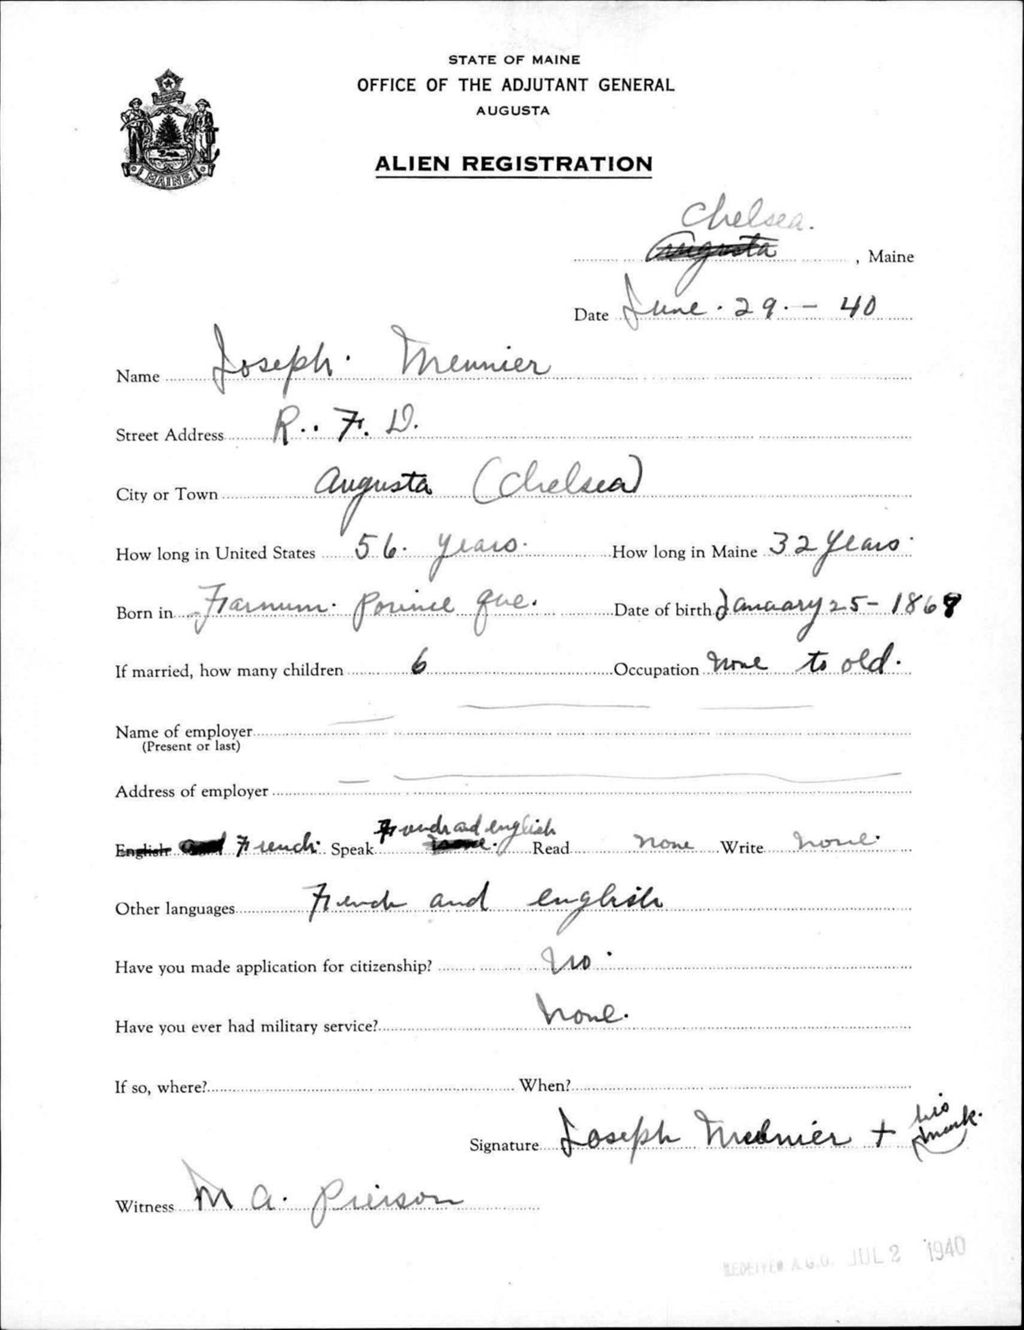 STATE OF MAINE
OFFICE OF THE ADJUTANT GENERAL
AUGUSTA
MAINE
ALIEN REGISTRATION
Chelsea.
Augusta, Maine
Date June. 29. - 40
Name Joseph. Meunier
Street Address R.. F. D.
City or Town Augusta (Chelsea)
How long in United States 56. years. How long in Maine 32 years.
Born in Farnum. Porince Que. Date of birth January 25 - 1868
If married, how many children 6 Occupation none to old.
Name of employer
(Present or last)
Address of employer
French and english
English and French. Speak none. Read none Write none.
Other languages French and english
Have you made application for citizenship? No.
Have you ever had military service? None.
If so, where? When?
Signature Joseph Meunier + his mark.
Witness M A. Pierson
RECEIVED A.G.O. JUL 2 1940